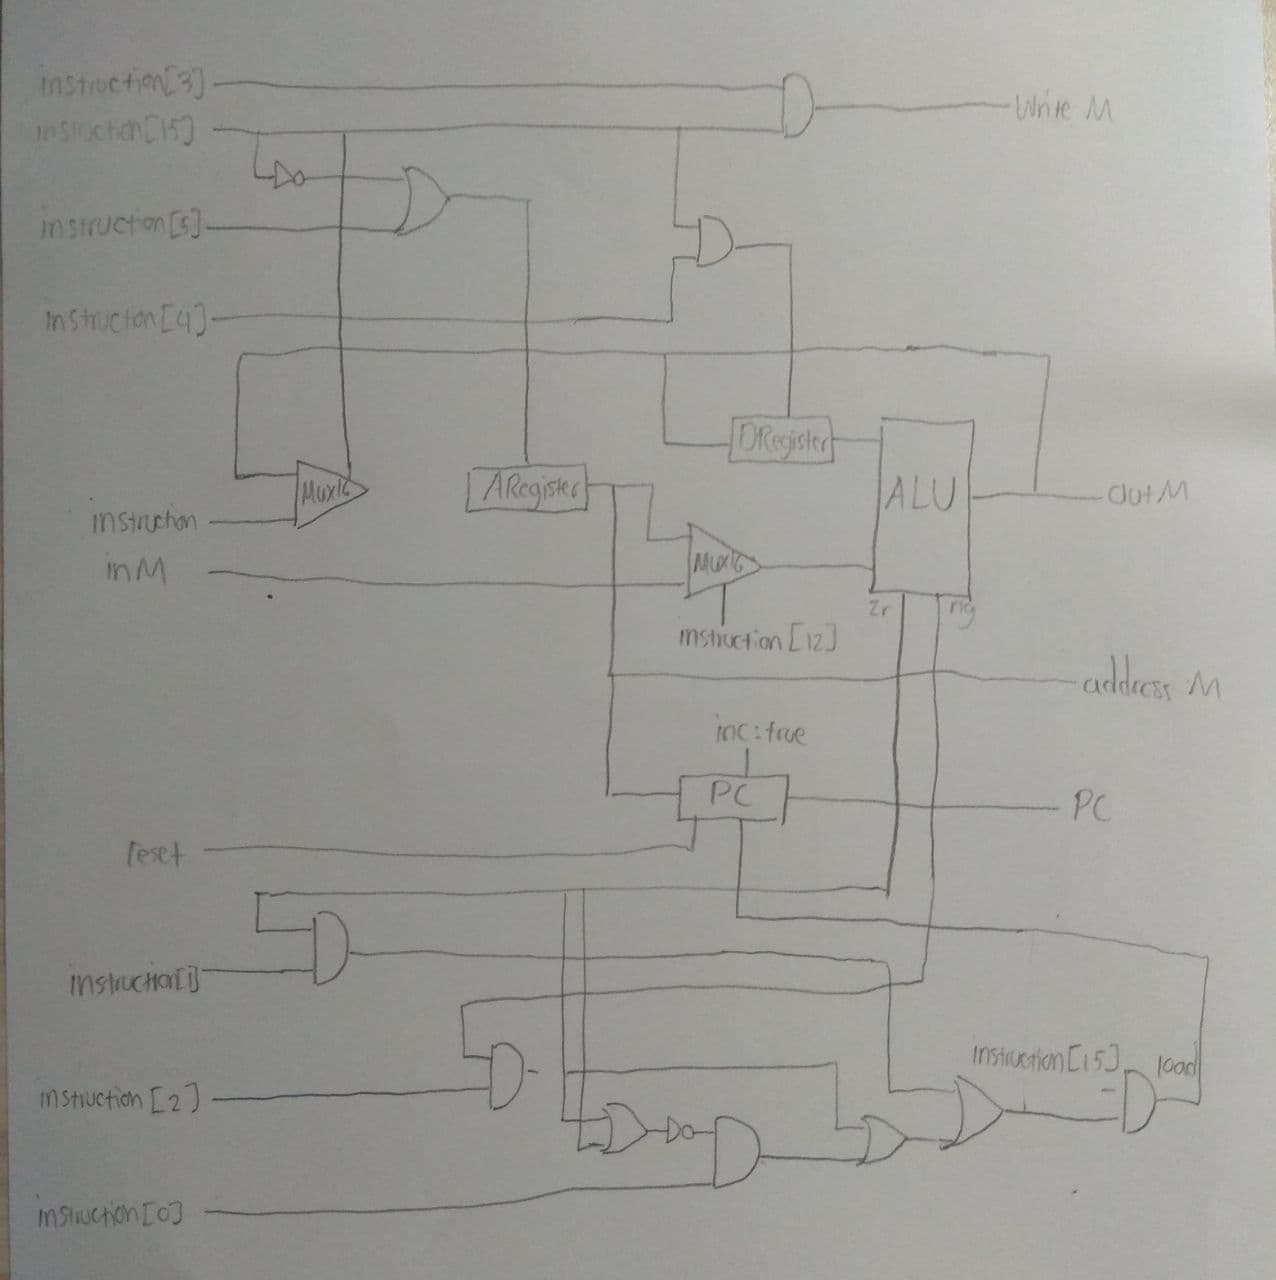 instruction[3]
Write M
instruction[15]
instruction[5]
instruction[4]
DRegister
Mux16
ARegister
ALU
OutM
instruction
inM
Mux16
Zr
ng
instruction[12]
address M
inc:true
PC
PC
reset
instruction[1]
instruction[15]
load
instruction[2]
instruction[0]